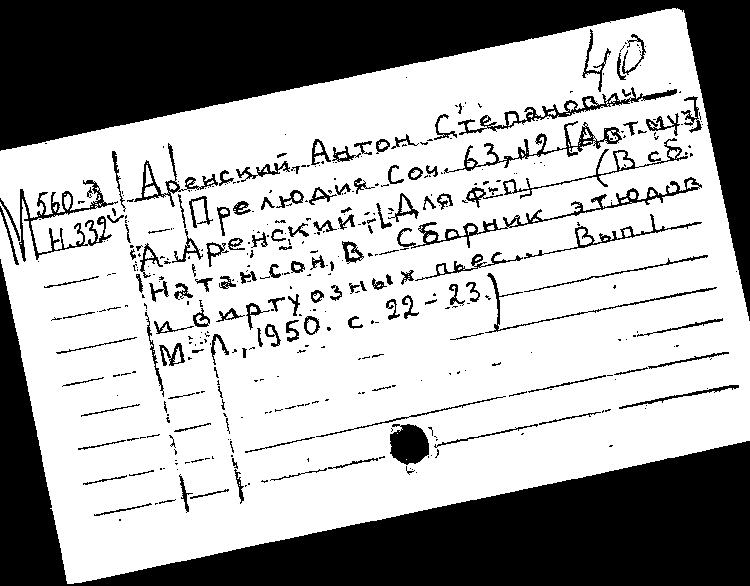 40
М 560-2
Н.332
Аренский, Антон Степанович.
Прелюдия Соч. 63, №2. [Авт.муз]
А. Аренский, [Для ф-п.] (В сб:
Натансон, В. Сборник этюдов
и виртуозных пьес... Вып.1.
М.-Л., 1950. с. 22-23.)